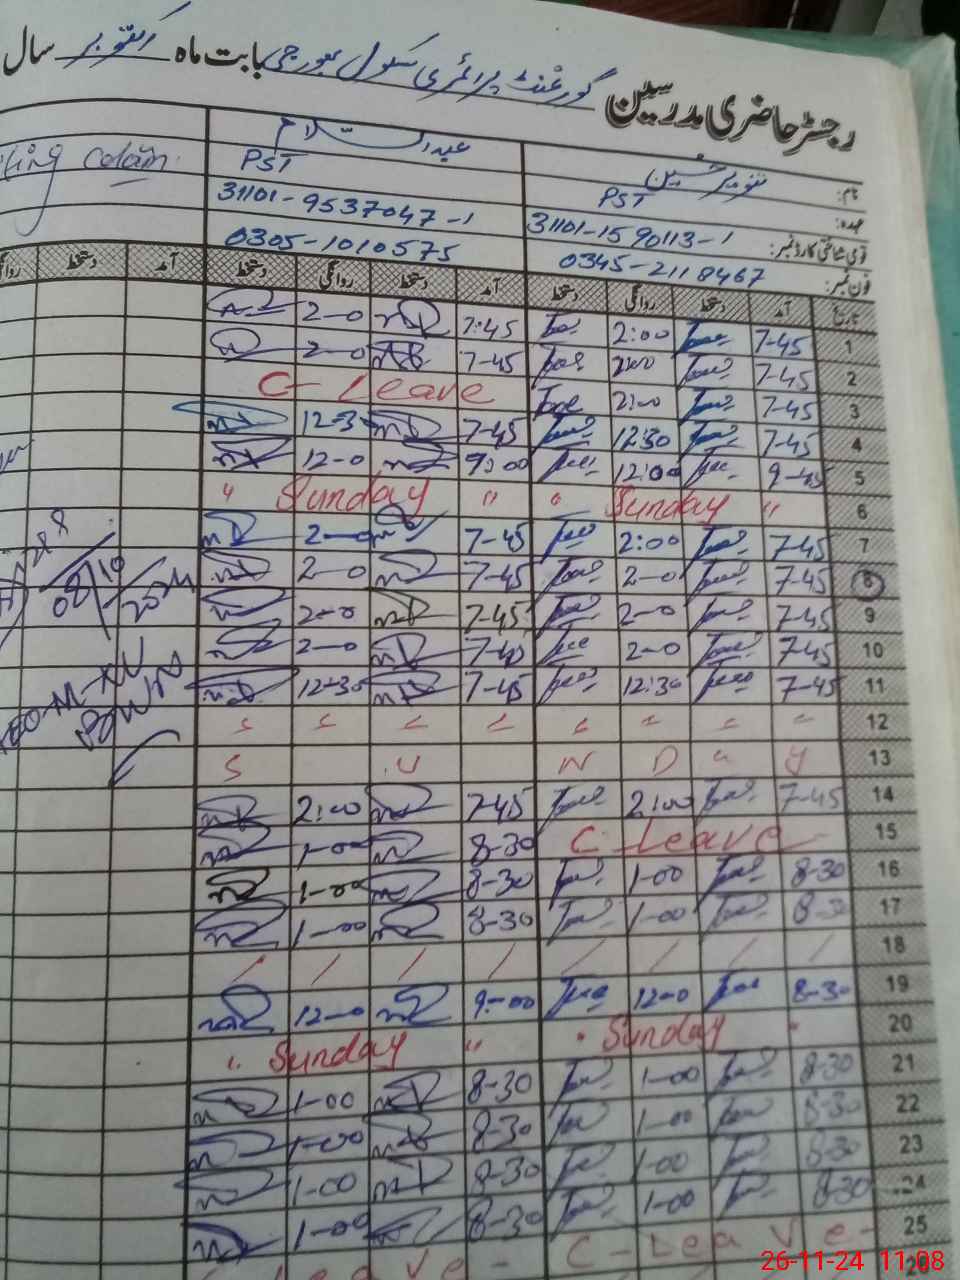 رجسٹر حاضری مدرسین گورنمنٹ پرائمری سکول بابت ماہ اکتوبر سال
نام: تنویر حسین عبدالسلام
عہدہ: PST PST
قومی شناختی کارڈ نمبر: 31101-1590113-1 31101-9537047-1
فون نمبر: 0345-2118467 0305-1010575
تاریخ آمد دستخط روانگی دستخط آمد دستخط روانگی دستخط آمد دستخط
1 7-45 2:00 7:45 2-0
2 7-45 2:00 7-45 2-0
3 7-45 2:00 C-Leave
4 7-45 12:30 7-45 12-3
5 9-45 12:00 9:00 12-0
6 " Sunday " " Sunday "
7 7-45 2:00 7-45 2-0
8 7-45 2-0 7-45 2-0
9 7-45 2-0 7-45 2-0
10 7-45 2-0 7-45 2-0
11 7-45 12:30 7-45 12-30
12
13 S U N D a y
14 7-45 2:00 7-45 2:00
15 C-Leave 8-30 1-00
16 8-30 1-00 8-30 1-00
17 8-30 1-00 8-30 1-00
18 / / / / / / / /
19 8-30 12-0 9-00 12-0
20 " Sunday " " Sunday "
21 8-30 1-00 8-30 1-00
22 8-30 1-00 8-30 1-00
23 8-30 1-00 8-30 1-00
24 8-30 1-00 8-30 1-00
25 C-Leave-
08/10
26-11-24 11:08